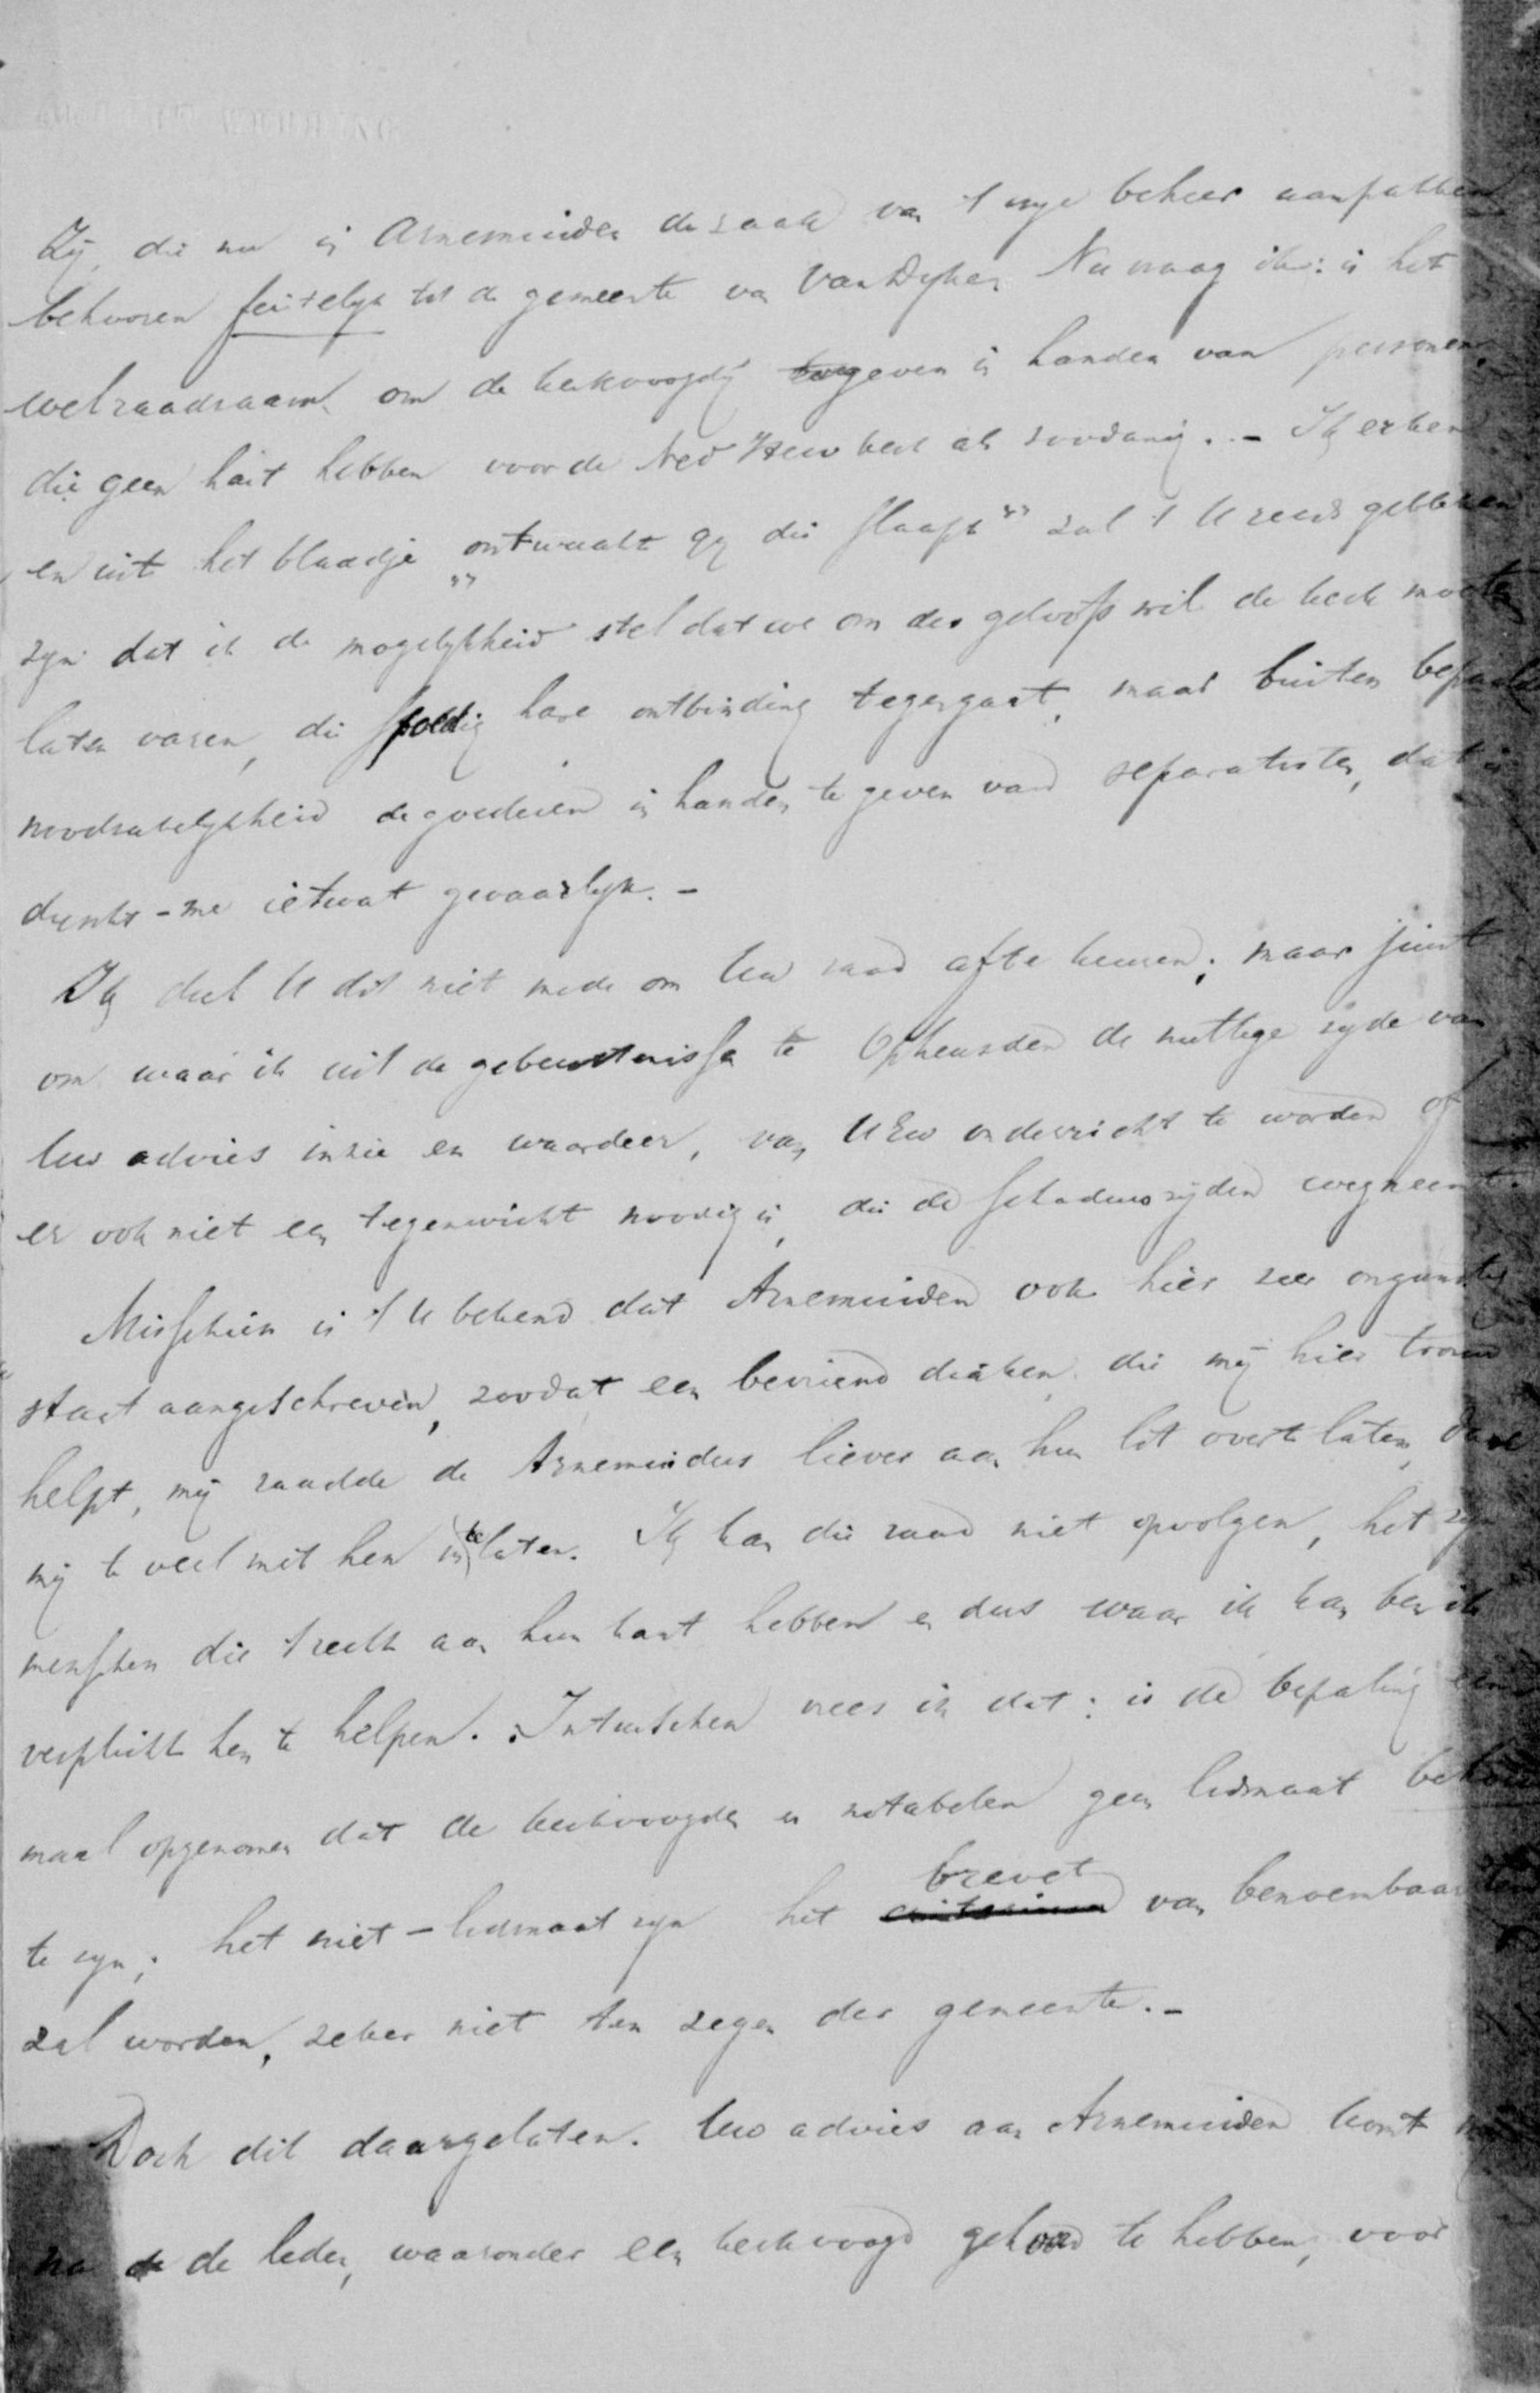 Zij, die nu in Arnemuiden de zaak van 't vrije beheer aanpakken
behooren feitelijk tot de gemeente van Van Dijke. Nu vraag ik: is het
wel raadzaam om de kerkvoogdij te geven in handen van personen,
die geen hart hebben voor de Ned Herv kerk als zoodanig. - Ik erken
en uit het blaadje „ontwaakt gij die slaapt" zal 't U reeds gebleken
zijn dat ik de mogelijkheid stel dat we om des geloofs wil de kerk moeten
laten varen, die spoedig hare ontbinding tegengaat, maar buiten bepaalde
noodzakelijkheid de goederen in handen te geven van separatisten, dat is
dunkt-me ietwat gevaarlijk. -
Ik deel U dit niet mede om Uw raad af te keuren; maar juist
om waar ik uit de gebeurtenissen te Opheusden de nuttige zijde van
Uw advies inzie en waardeer, van UEw onderricht te worden of
er ook niet een tegenwicht noodig is, die de schaduwzijden wegneemt.
Misschien is 't U bekend dat Arnemuiden ook hier zeer ongunstig
staat aangeschreven, zoodat een bevriend diaken, die mij hier trouw
helpt, mij raadde de Arnemuiders liever aan hun lot over te laten, dan
mij te veel met hen in te laten. Ik kan die raad niet opvolgen, het zijn
menschen die 't recht aan hun kant hebben en dus waar ik kan ben ik
verplicht hen te helpen. Intusschen vrees ik dat: is de bepaling een
maal opgenomen dat de kerkvoogden en notabelen geen lidmaat behoeven
te zijn; het niet-lidmaat zijn het brevet van benoembaarheid
zal worden, zeker niet ten zegen der gemeente. -
Doch dit daargelaten. Uw advies aan Arnemuiden komt
na de leden, waaronder een kerkvoogd gehoord te hebben, voor